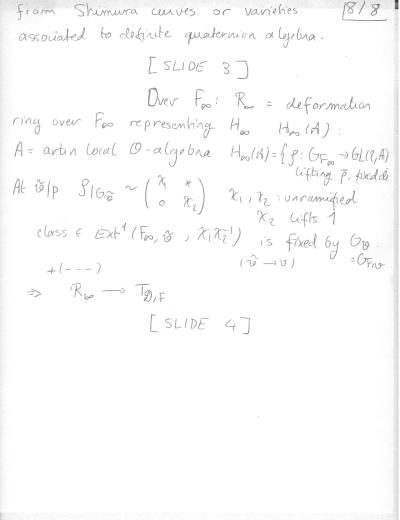 from Shimura curves or varieties 8/8
associated to definite quaternion algebra.
[SLIDE 3]
Over F∞: R∞ = deformation
ring over F∞ representing H∞ H∞(A):
A = artin local O-algebra H∞(A) = {ρ: G_F∞ → GL(2,A)
lifting ρ̄, fixed det
At ṽ/p ρ|G_ṽ ~ (χ₁ * / 0 χ₂) χ₁, χ₂: unramified
χ₂ lifts 1
class ∈ Ext¹(F∞,ṽ, χ₁χ₂⁻¹) is fixed by G_v
(ṽ → v) = G_F,v
+(---)
⇒ R∞ → T_D,F
[SLIDE 4]